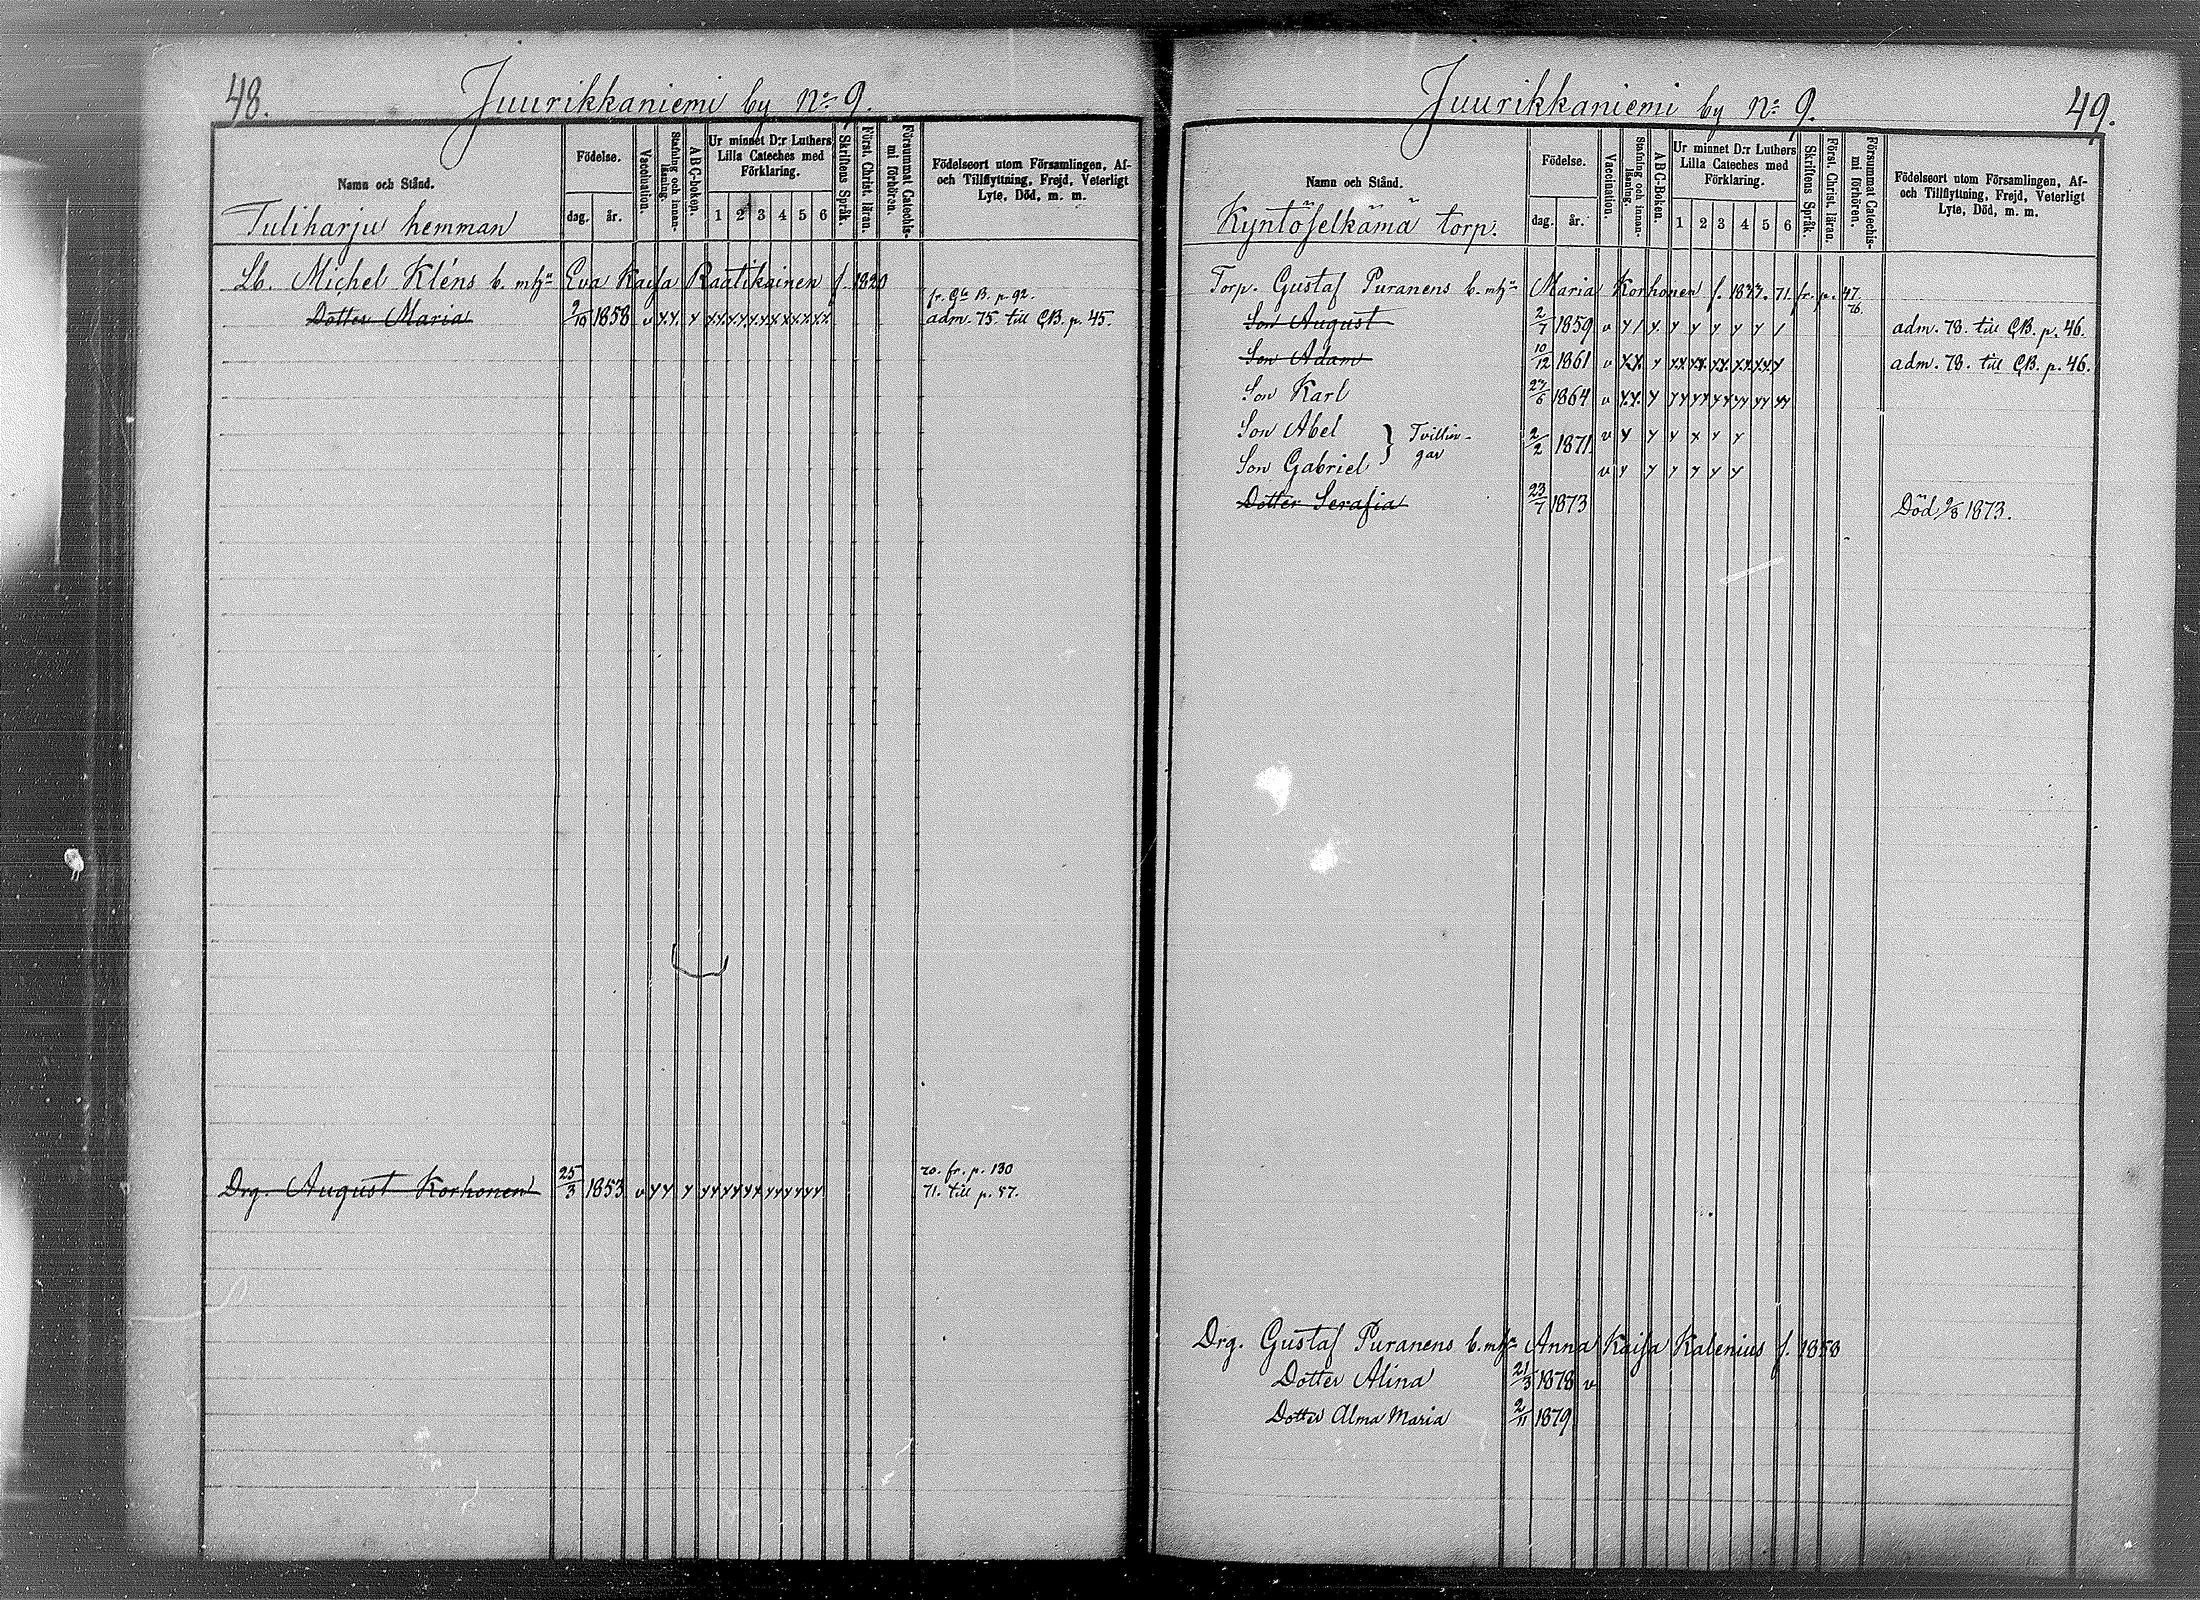 48.
Juurikkaniemi by No 9.
Namn och Stånd.
Födelse.
dag. år.
Vaccination.
Stafning och innanläsning.
ABC-boken.
Ur minnet D:r Luthers Lilla Cateches med Förklaring.
1 2 3 4 5 6
Skriftens Språk.
Först. Christ. läran.
Försummat Catechismi förhören.
Födelseort utom Församlingen, Af- och Tillflyttning, Frejd, Veterligt Lyte, Död, m. m.
Tuliharju hemman
Lb. Michel Kléns b. m. h:u Eva Kaisa Raatikainen f. 1820
Dotter Maria 2/10 1858 v adm. 75. till CB. p. 45.
Drg. August Korhonen 25/3 1853 v 70. fr. p. 130
71. till p. 57.
49.
Juurikkaniemi by No 9.
Namn och Stånd.
Födelse.
dag. år.
Vaccination.
Stafning och innanläsning.
ABC-Boken.
Ur minnet D:r Luthers Lilla Cateches med Förklaring.
1 2 3 4 5 6
Skriftens Språk.
Först. Christ. läran.
Försummat Catechismi förhören.
Födelseort utom Församlingen, Af- och Tillflyttning, Frejd, Veterligt Lyte, Död, m. m.
Kyntöselkämä torp.
Torp. Gustaf Puranens b. m. h:u Maria Korhonen f. 1833. 71. fr. p. 47
76.
Son August 2/7 1859 v adm. 78. till CB. p. 46.
Son Adam 10/12 1861 v adm. 78. till CB. p. 46.
Son Karl 27/6 1864 v
Son Abel } Tvillin- 2/2 1871 v
Son Gabriel } gar v
Dotter Serafia 23/7 1873 Död 9/8 1873.
Drg. Gustaf Puranens b. m. h:u Anna Kaisa Kalenius f. 1858
Dotter Alina 21/3 1878 v
Dotter Alma Maria 2/11 1879